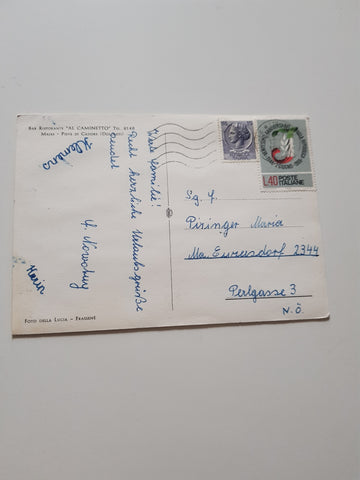 BAR RISTORANTE "AL CAMINETTO" TEL. 4148
MAISS - PIEVE DI CADORE (DOLOMITI)
Klemens
Werte Familie!
Recht herzliche Urlaubsgrüße
sendet
Maria
FOTO DELLA LUCIA - FRASSENÉ
L.40 POSTE
ITALIANE
Sg. F.
Piringer Maria
Ma. Enzersdorf 2344
Perlgasse 3
N.Ö.